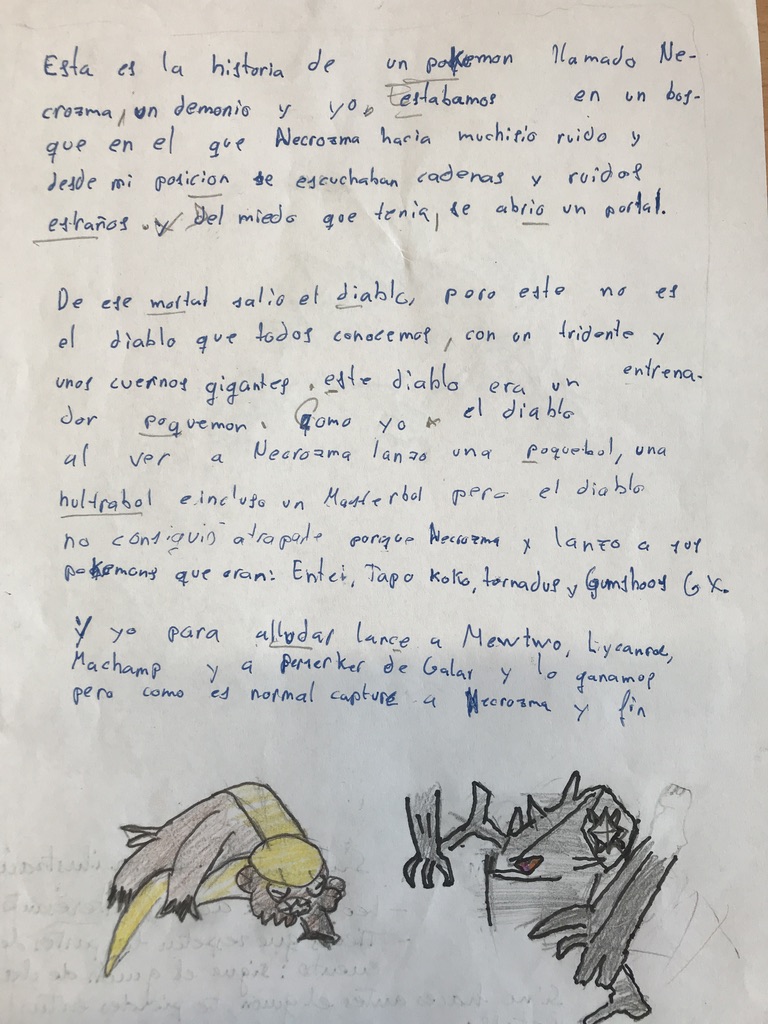 Esta es la historia de un pokemon llamado Ne-
crozma, un demonio y yo. Estabamos en un bos-
que en el que Necrozma hacia muchisio ruido y
desde mi posicion se escuchaban cadenas y ruidos
estraños. y Del miedo que tenia, se abrio un portal.
De ese mortal salio el diablo, pero este no es
el diablo que todos conocemos, con un tridente y
unos cuernos gigantes. este diablo era un entrena-
dor poquemon. Como yo el diablo
al ver a Necrozma lanzo una poquebol, una
hultrabol e incluso un Masterbol pero el diablo
no consiguio atraparle porque Necrozma x lanzo a sus
pokemons que eran: Entei, Tapo koko, tornadus y Gumshoos GX.
Y yo para alludar lance a Mewtwo, Lycanroc,
Machamp y a perrserker de Galar y lo ganamos
pero como es normal capture a Necrozma y fin